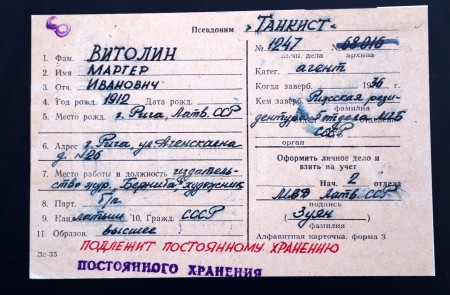 Псевдоним „Танкист“
1. Фам. Витолин
2. Имя Маргер
3. Отч. Иванович
4. Год рожд. 1912 Дата рожд.
5. Место рожд. г. Рига, Латв. ССР
6. Адрес г. Рига, ул.
д. №26
7. Место работы и должность издатель-
ство жур. „Бернига“ художник
8. Парт. б/п.
9. Нац. латыш 10. Гражд. СССР
11 Образов. высшее
№ 1247
личн. дела архива
Катег. агент
Когда заверб.
Кем заверб. Рижская рези-
фамилия
дентура
СССР
Оформить личное дело и
взять на учет
Нач. 2 отдел
МВД Латв. ССР
подпись
Зуян
фамилия
Алфавитная карточка, форма 3
ПОДЛЕЖИТ ПОСТОЯННОМУ ХРАНЕНИЮ
ПОСТОЯННОГО ХРАНЕНИЯ